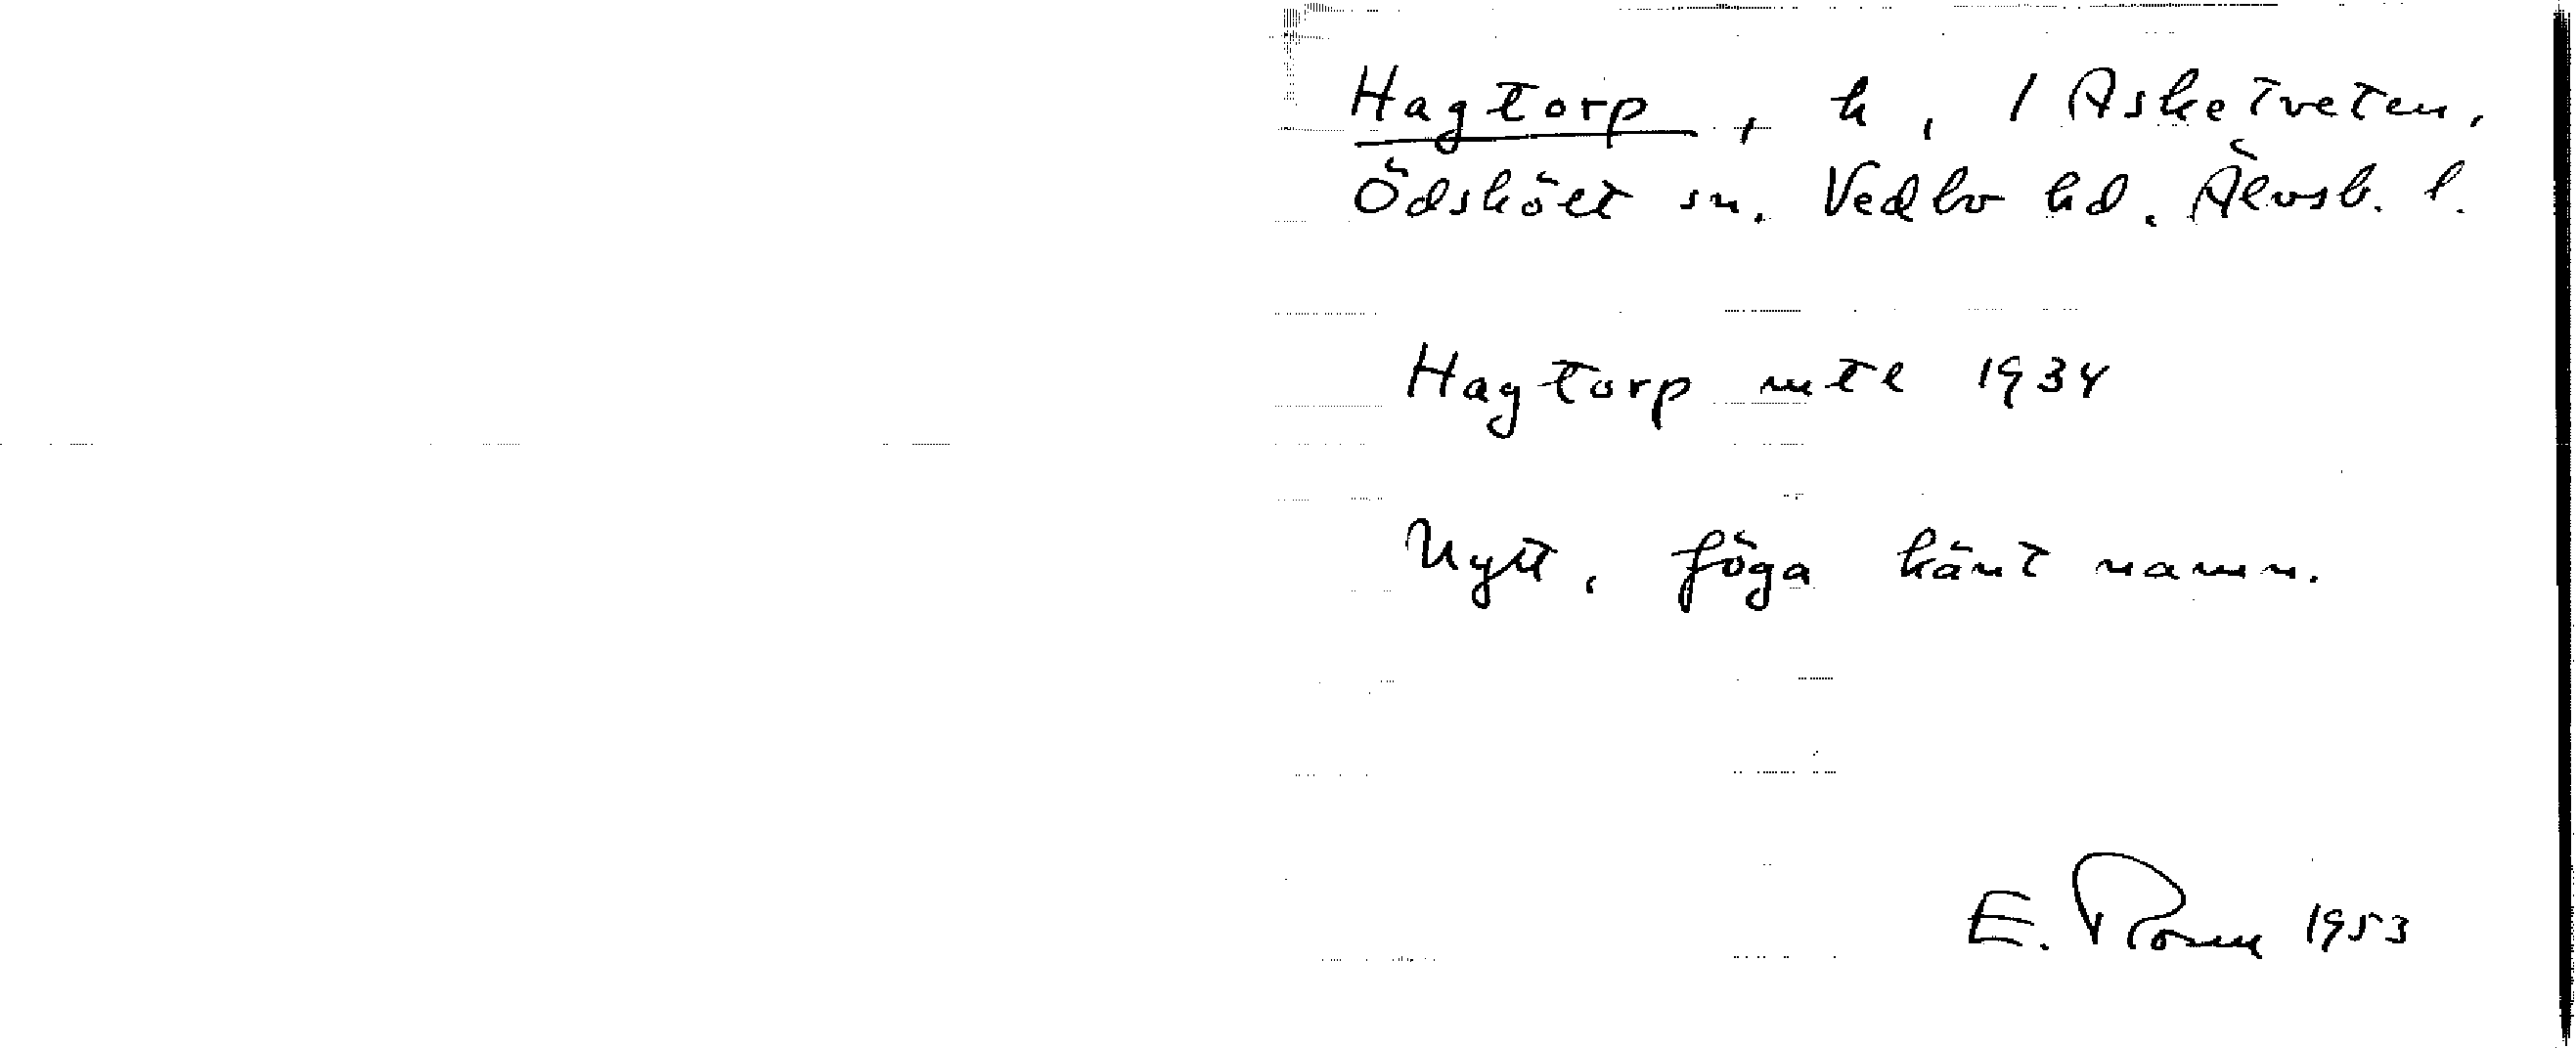 Hagtorp, h, / Asketveten,
Ödskölt sn. Vedbo hd. Älvsb. l.
Hagtorp mtl 1934
Nytt, föga känt namn.
E. 1953